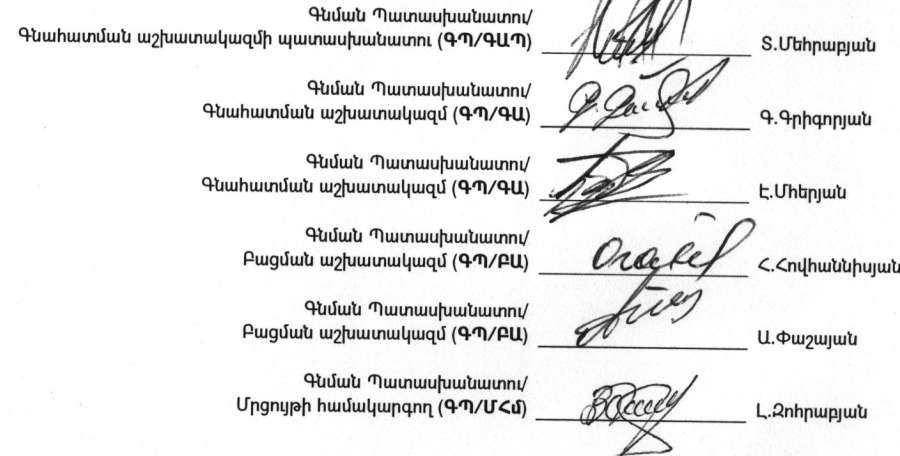 Գնման Պատասխանատու/
Գնահատման աշխատակազմի պատասխանատու (ԳՊ/ԳԱՊ) Տ.Մեհրաբյան
Գնման Պատասխանատու/
Գնահատման աշխատակազմ (ԳՊ/ԳԱ) Գ.Գրիգորյան
Գնման Պատասխանատու/
Գնահատման աշխատակազմ (ԳՊ/ԳԱ) Է.Մհերյան
Գնման Պատասխանատու/
Բացման աշխատակազմ (ԳՊ/ԲԱ) Հ.Հովհաննիսյան
Գնման Պատասխանատու/
Բացման աշխատակազմ (ԳՊ/ԲԱ) Ա.Փաշայան
Գնման Պատասխանատու/
Մրցույթի համակարգող (ԳՊ/ՄՀմ) Լ.Զոհրաբյան